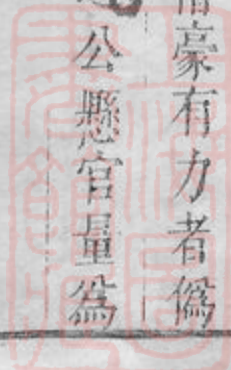 豪有力者僞
公懸官量爲